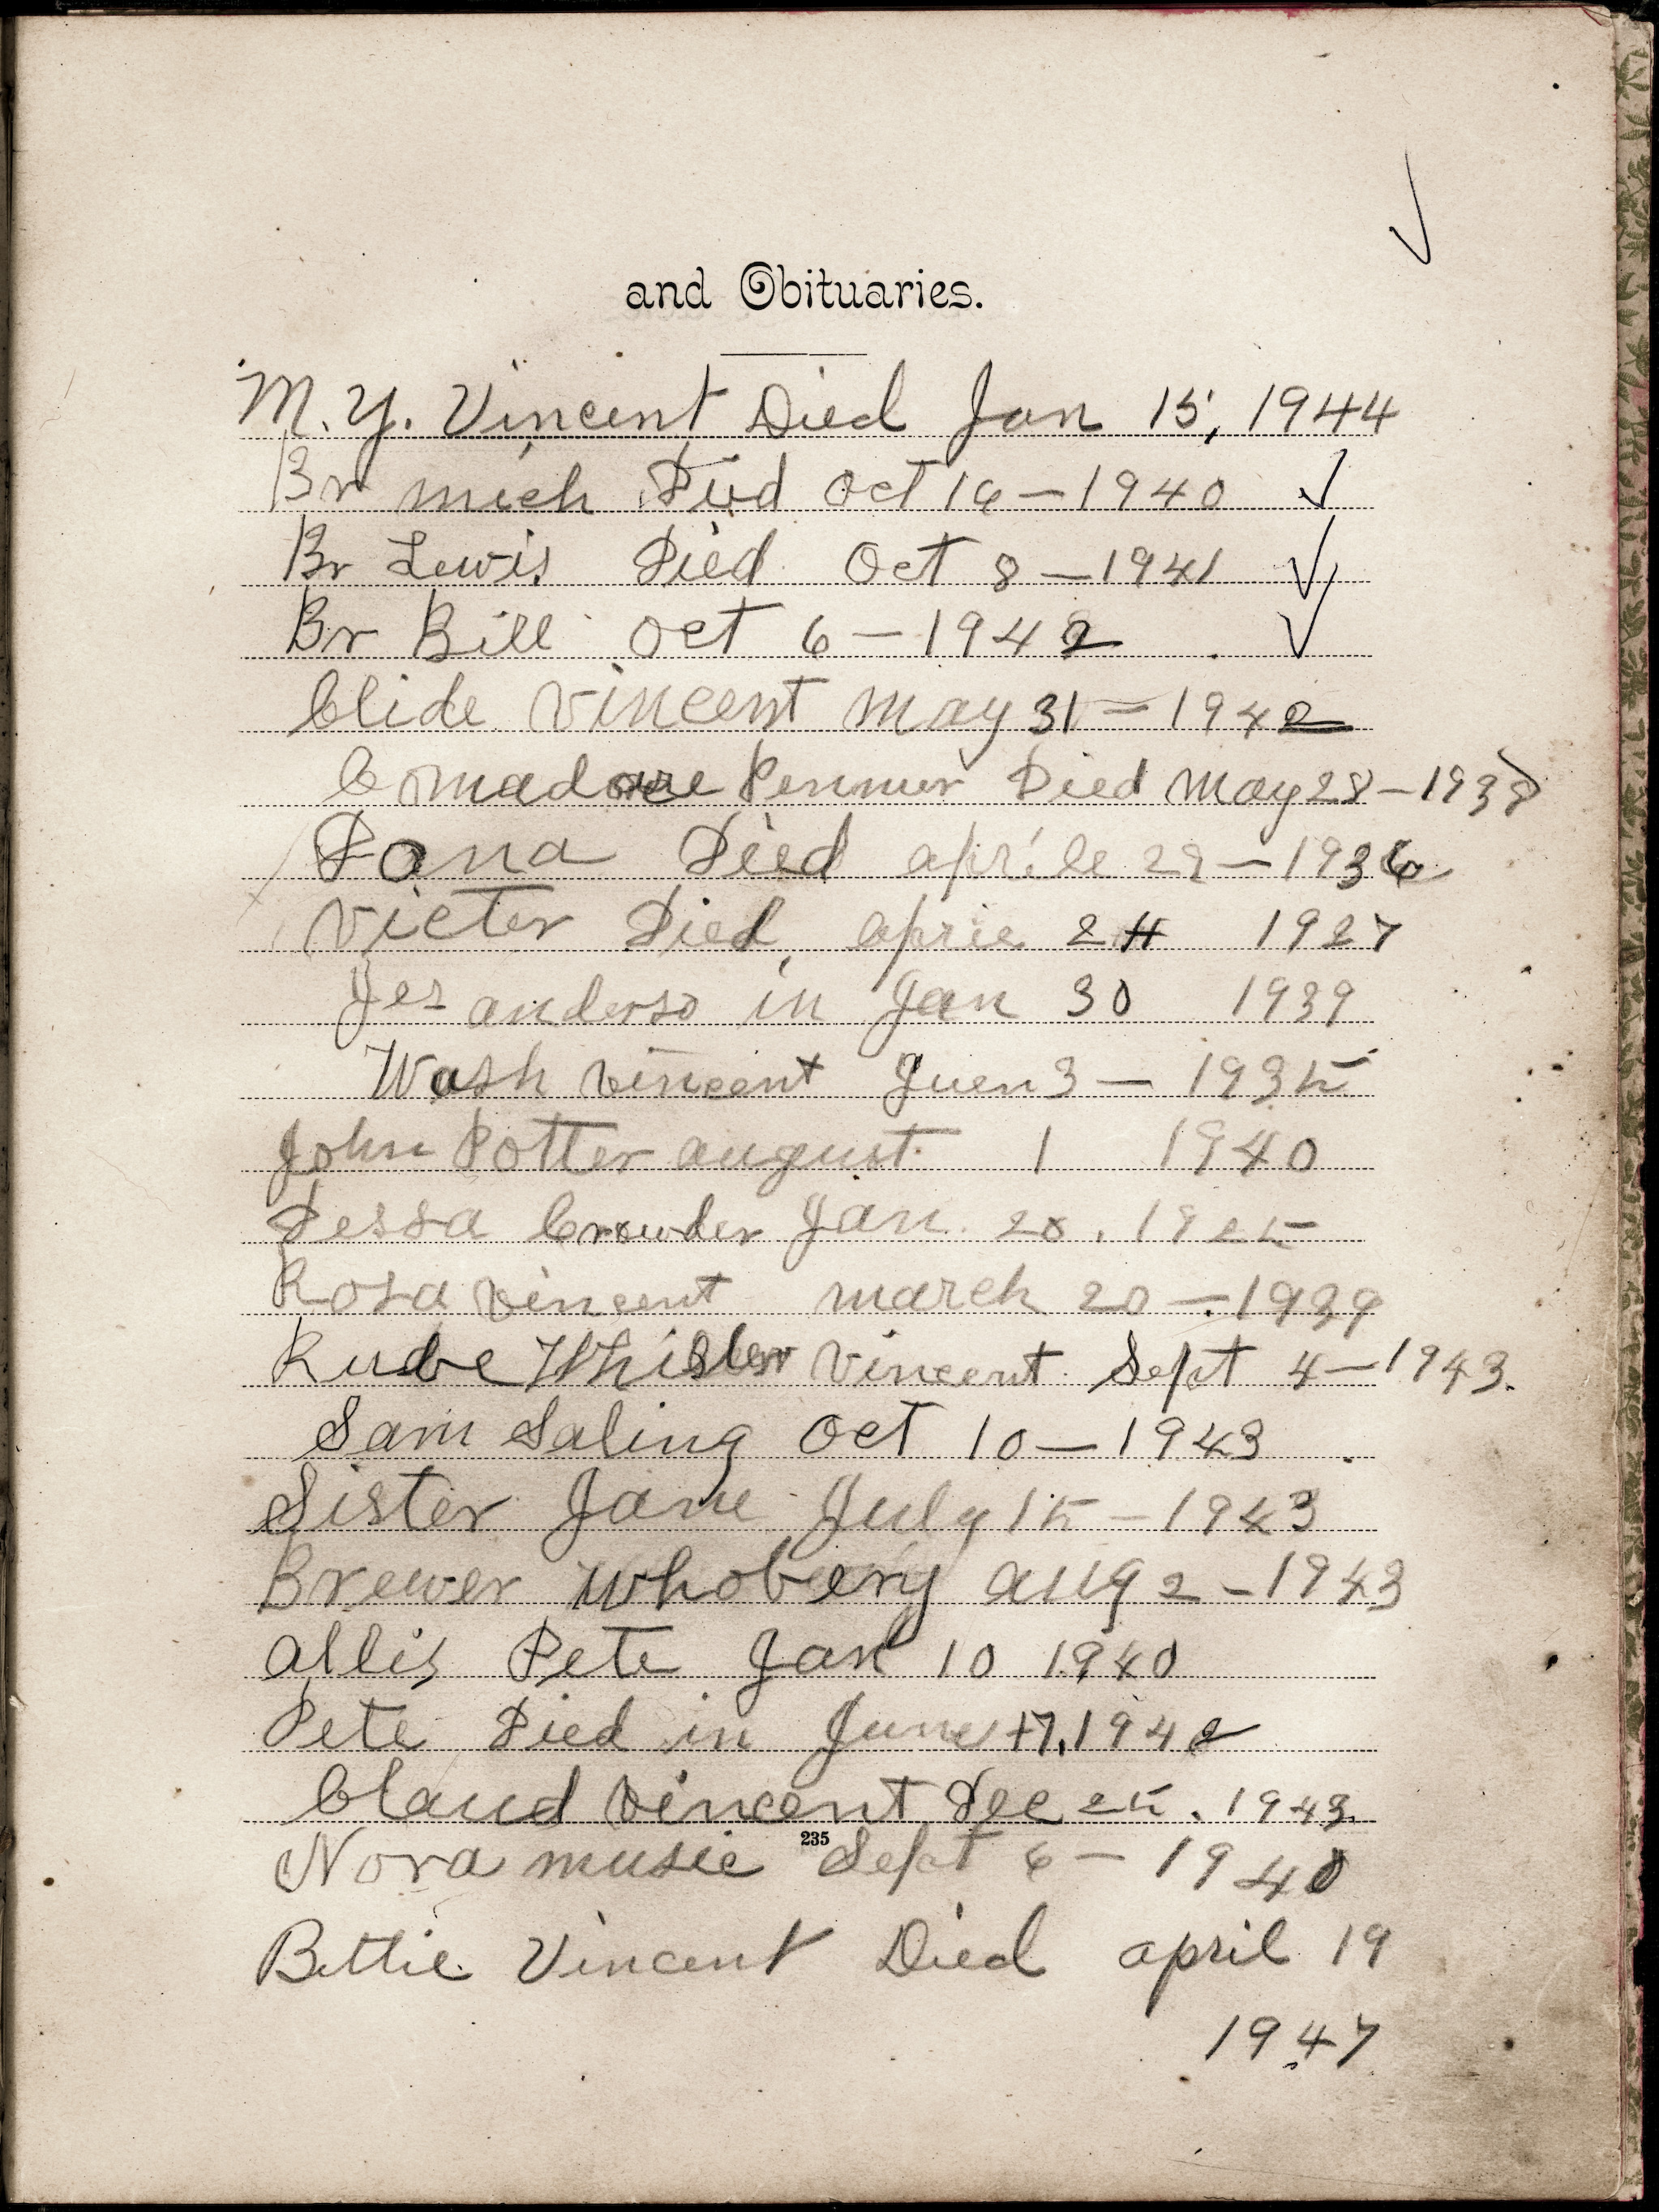 and Obituaries.
M. Y. Vincent Died Jan 15, 1944
Br mich Died Oct 16 – 1940
Br Lewis Died Oct 8 – 1941
Br Bill Oct 6 – 1942
Clide Vincent May 31 – 1942
Comadore Penner Died May 28 – 1938
Dona Died aprile 29 – 1936
Victer Died aprie 24 1927
Jes anderso in Jan 30 1939
Wash Vincent Juen 3 – 1935
John Potter august 1 1940
Dessa Crowder Jan. 20. 1925
Rosa Vincent march 20 – 1939
Rube Vincent Sept 4 – 1943.
Sam Saling Oct 10 – 1943
Sister Jane July 15 – 1943
Brewer Whobery aug 2 – 1943
Allis Pete Jan 10 1940
Pete Died in June 17, 1942
Claud Vincent Dec 25. 1943
235
Nora music Sept 6 – 1940
Bettie Vincent Died april 19
1947